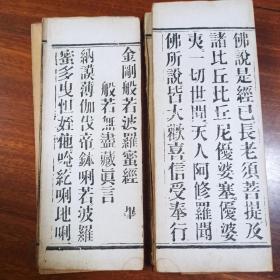 佛說是經已長老須菩提及
諸比丘比丘尼優婆塞優婆
夷一切世間天人阿修羅聞
佛所說皆大歡喜信受奉行
金剛般若波羅蜜經 畢
般若無盡藏眞言
納謨薄伽伐帝鉢唎若波羅
蜜多曳怛姪他唵紇唎地唎